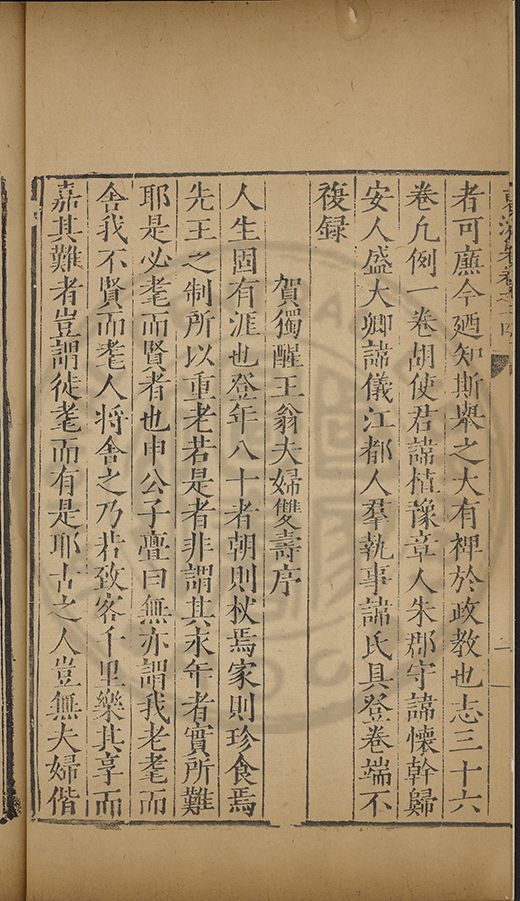 者可廡今廼知斯舉之大有裨於政教也志三十六
卷凢例一卷胡使君諱植豫章人朱郡守諱懷幹歸
安人盛大卿諱儀江都人羣執事諱氏具登卷端不
複録
賀獨醒王翁夫婦雙壽序
人生固有涯也登年八十者朝則杖焉家則珍食焉
先王之制所以重老若是者非謂其末年者實所難
耶是必耄而賢者也申公子亹曰無亦謂我老耄而
舍我不賢而耄人将舍之乃若致客千里樂其享而
嘉其難者豈謂徒耄而有是耶古之人豈無夫婦偕